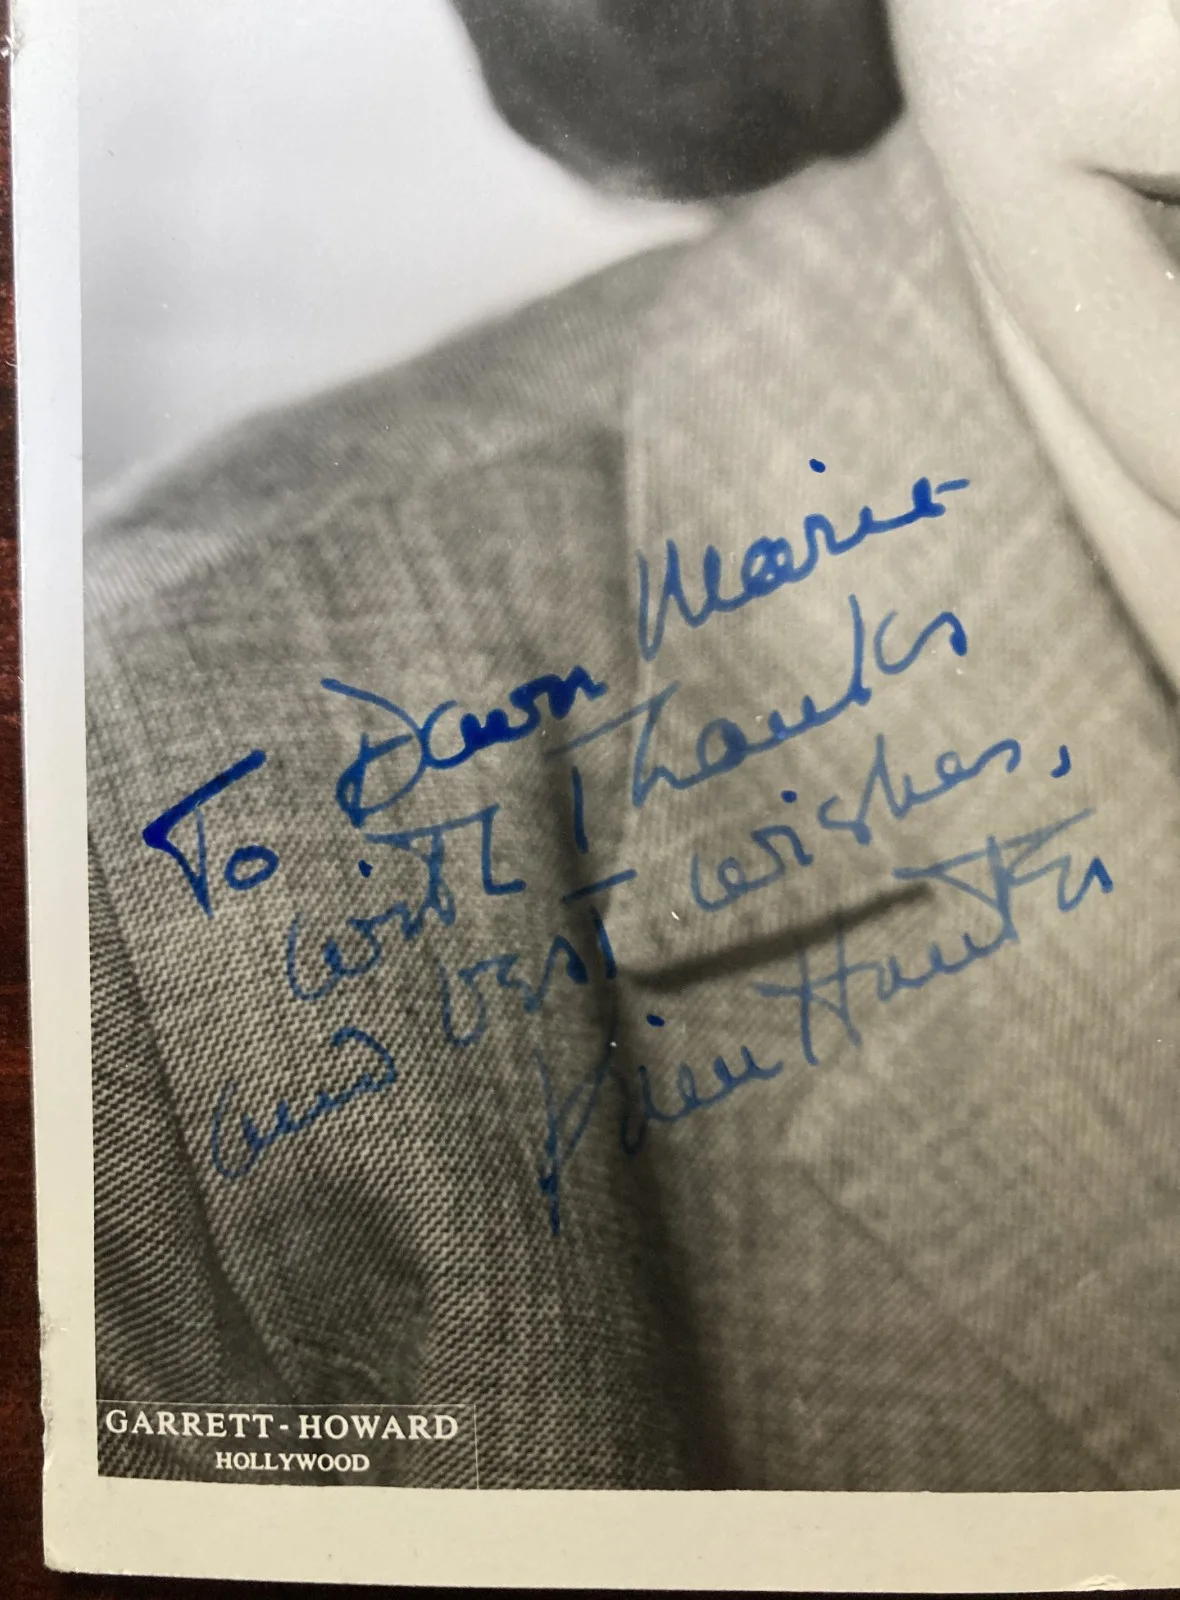 To Dawn Marie
with Thanks
and best wishes,
GARRETT-HOWARD
HOLLYWOOD